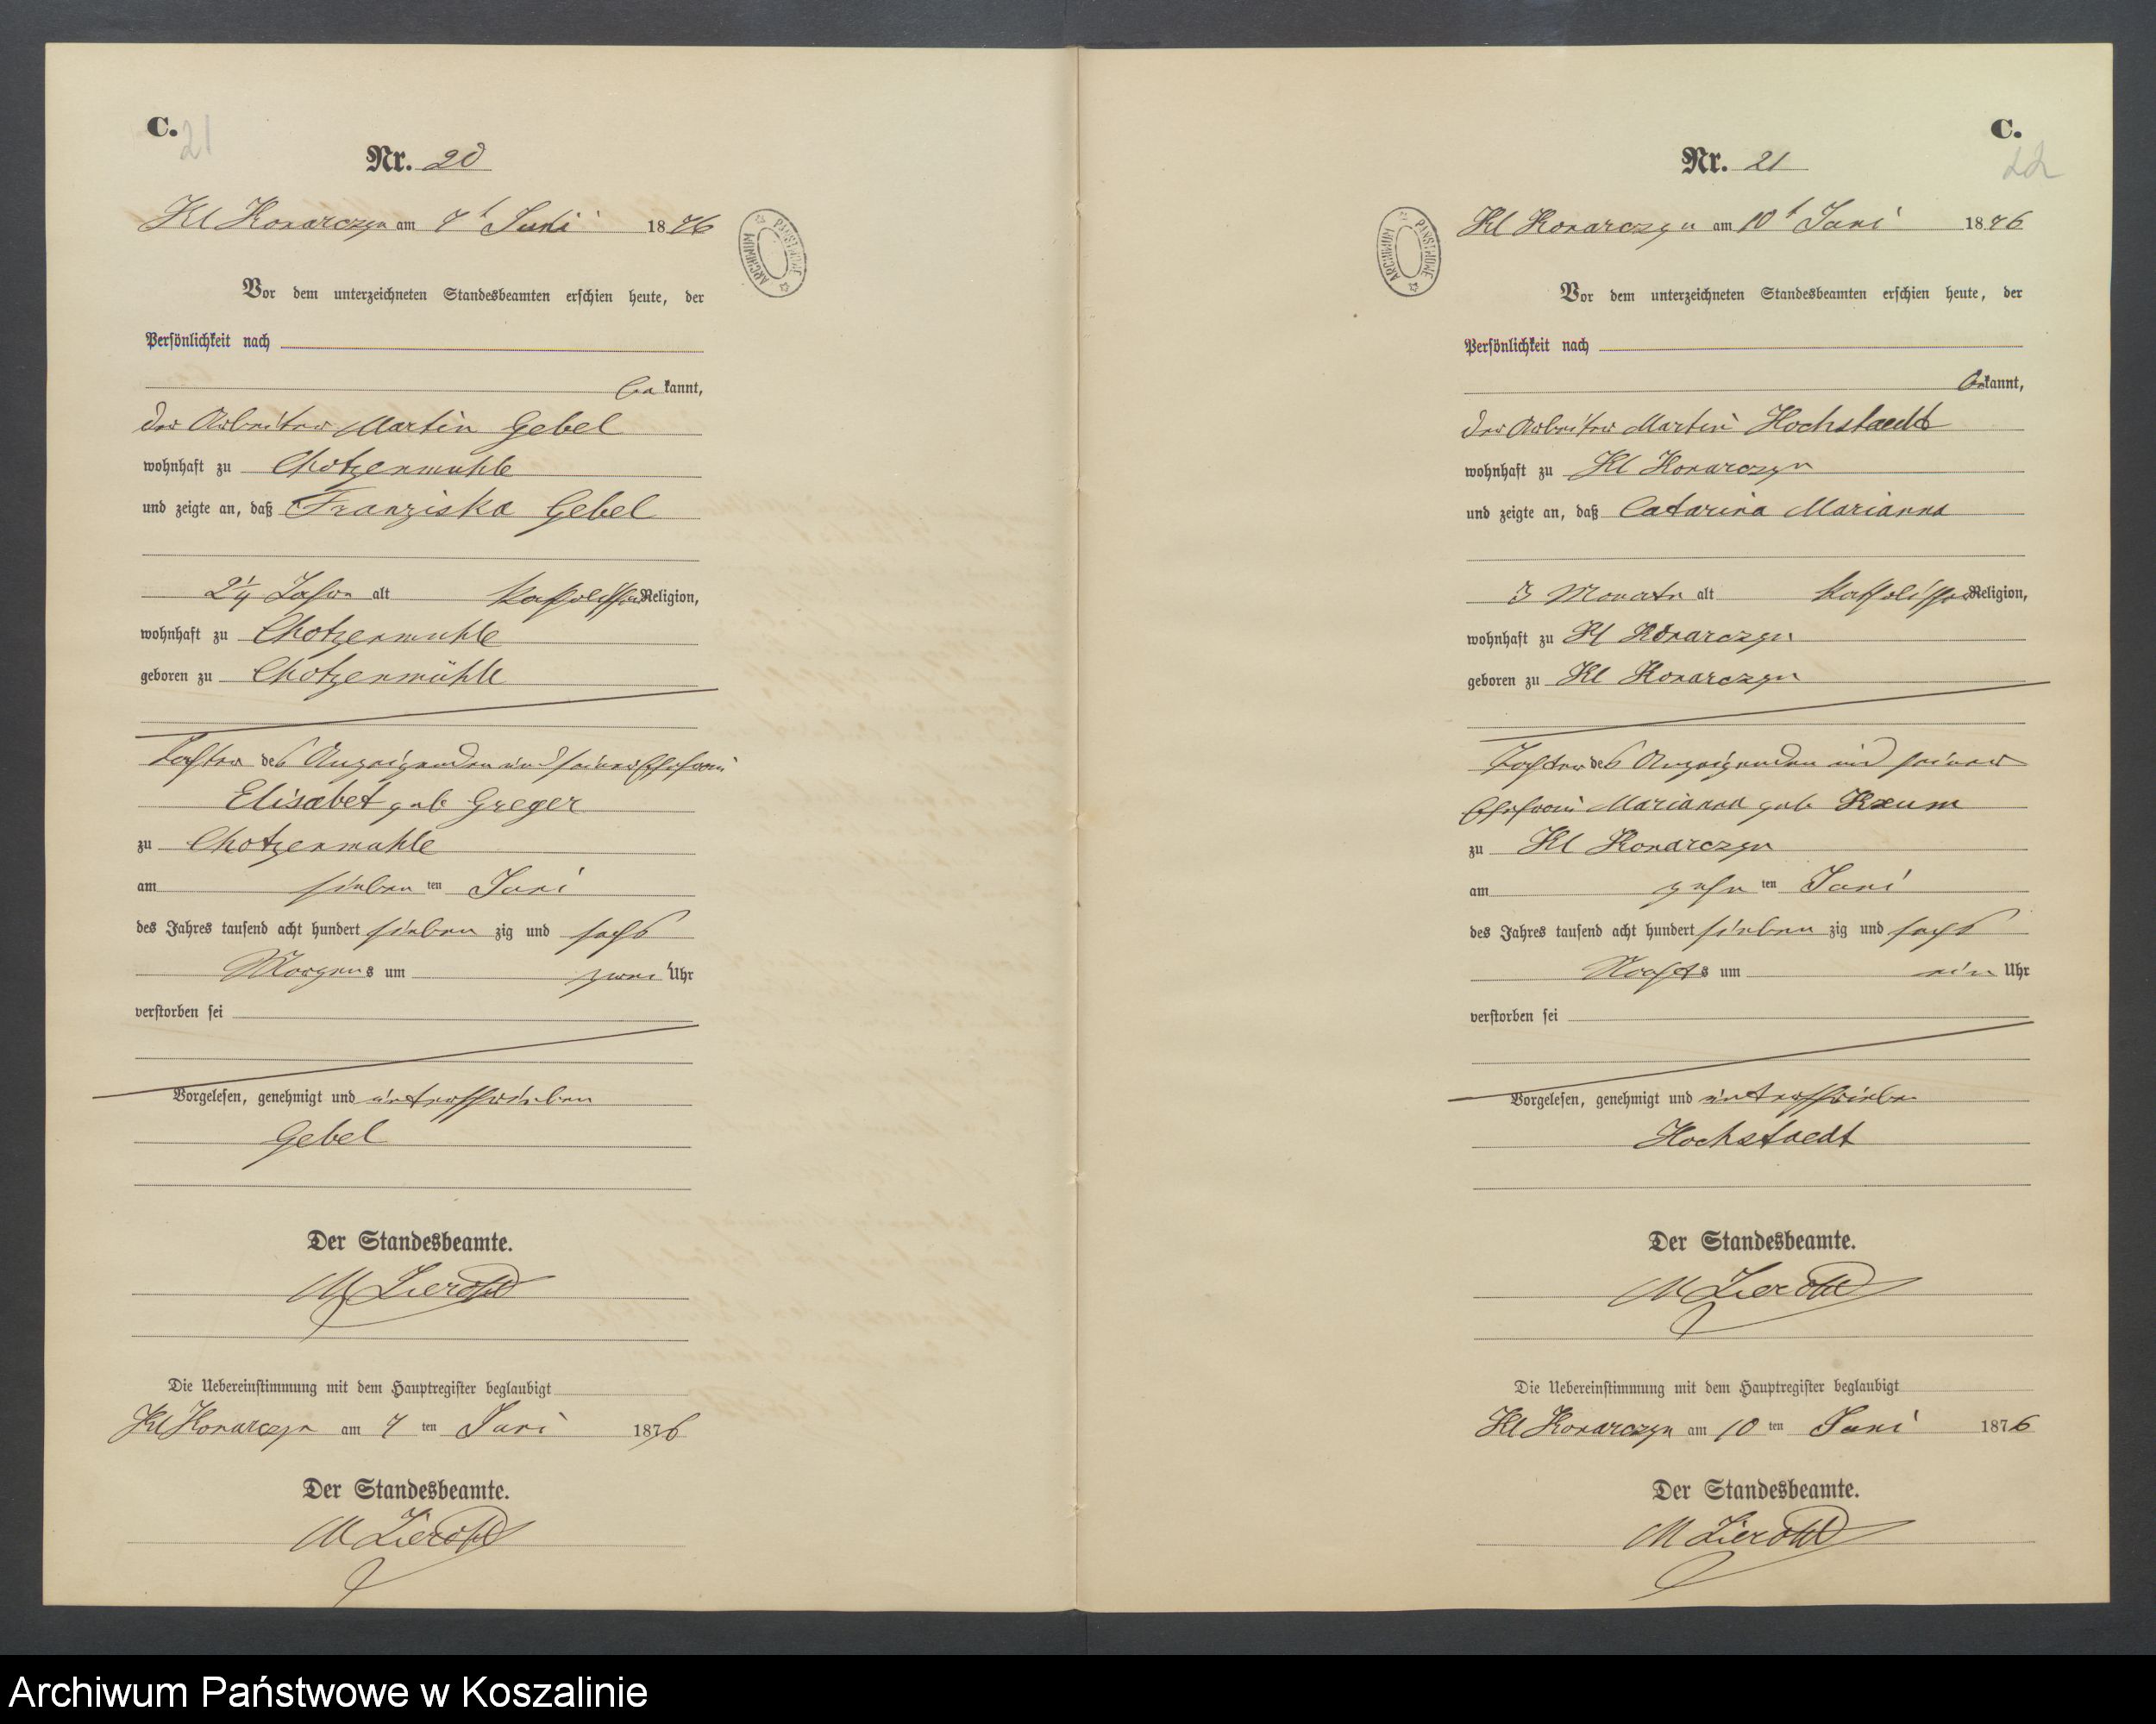 C. 21
Nr. 20
Kl Konarczyn am 7t Juni 1876
ARCHIWUM PAŃSTWOWE
Vor dem unterzeichneten Standesbeamten erschien heute, der
Persönlichkeit nach
bekannt,
der Arbeiter Martin Gebel
wohnhaft zu Chotzenmühle
und zeigte an, daß Franziska Gebel
2¼ Jahre alt katholischer Religion,
wohnhaft zu Chotzenmühle
geboren zu Chotzenmühle
Tochter des Anzeigenden und seiner Ehefrau
Elisabet geb Greger
zu Chotzenmühle
am sieben ten Juni
des Jahres tausend acht hundert sieben zig und sechs
Morgens um zwei Uhr
verstorben sei
Vorgelesen, genehmigt und unterschrieben
Gebel
Der Standesbeamte.
M
Die Uebereinstimmung mit dem Hauptregister beglaubigt
Kl Konarczyn am 7 ten Juni 1876
Der Standesbeamte.
M
C.
22
Nr. 21
Kl Konarczyn am 10t Juni 1876
ARCHIWUM PAŃSTWOWE
Vor dem unterzeichneten Standesbeamten erschien heute, der
Persönlichkeit nach
bekannt,
der Arbeiter Martin Hochstaedt
wohnhaft zu Kl Konarczyn
und zeigte an, daß Catarina Marianna
3 Monate alt katholischer Religion,
wohnhaft zu Kl Konarczyn
geboren zu Kl Konarczyn
Tochter des Anzeigenden und seiner
Ehefrau Marianna geb
zu Kl Konarczyn
am zehn ten Juni
des Jahres tausend acht hundert sieben zig und sechs
Nachts um ein Uhr
verstorben sei
Vorgelesen, genehmigt und unterschrieben
Hochstaedt
Der Standesbeamte.
M
Die Uebereinstimmung mit dem Hauptregister beglaubigt
Kl Konarczyn am 10 ten Juni 1876
Der Standesbeamte.
M
Archiwum Państwowe w Koszalinie